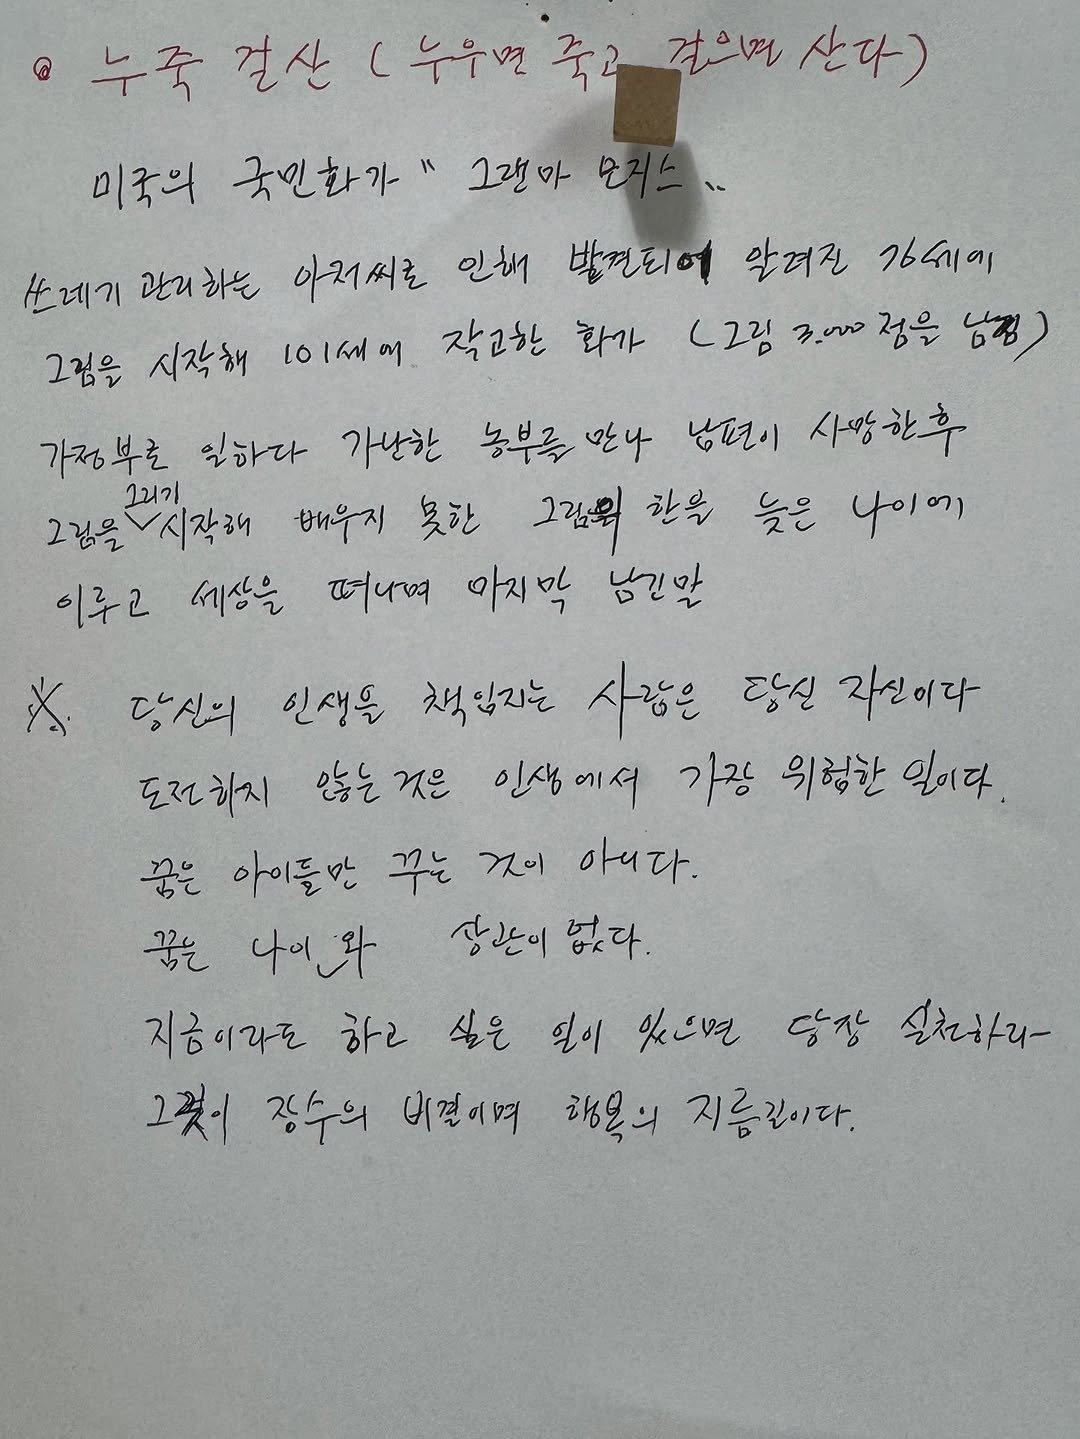 누죽 걸산 (누우면 죽고 걸으면 산다)
미국의 국민화가 " 그랜마 모지스 "
쓰레기 관리하는 아저씨로 인해 발견되어 알려진 76세에
그림을 시작해 101세에 작고한 화가 (그림 3.000점을 남김)
가정부로 일하다 가난한 농부를 만나 남편이 사망한 후
그림을 그리기 시작해 배우지 못한 그림의 한을 늦은 나이에
이루고 세상을 떠나며 마지막 남긴말
※ 당신의 인생을 책임지는 사람은 당신 자신이다
도전하지 않는 것은 인생에서 가장 위험한 일이다.
꿈은 아이들만 꾸는 것이 아니다.
꿈은 나이와 상관이 없다.
지금이라도 하고 싶은 일이 있으면 당장 실천하라
그것이 장수의 비결이며 행복의 지름길이다.